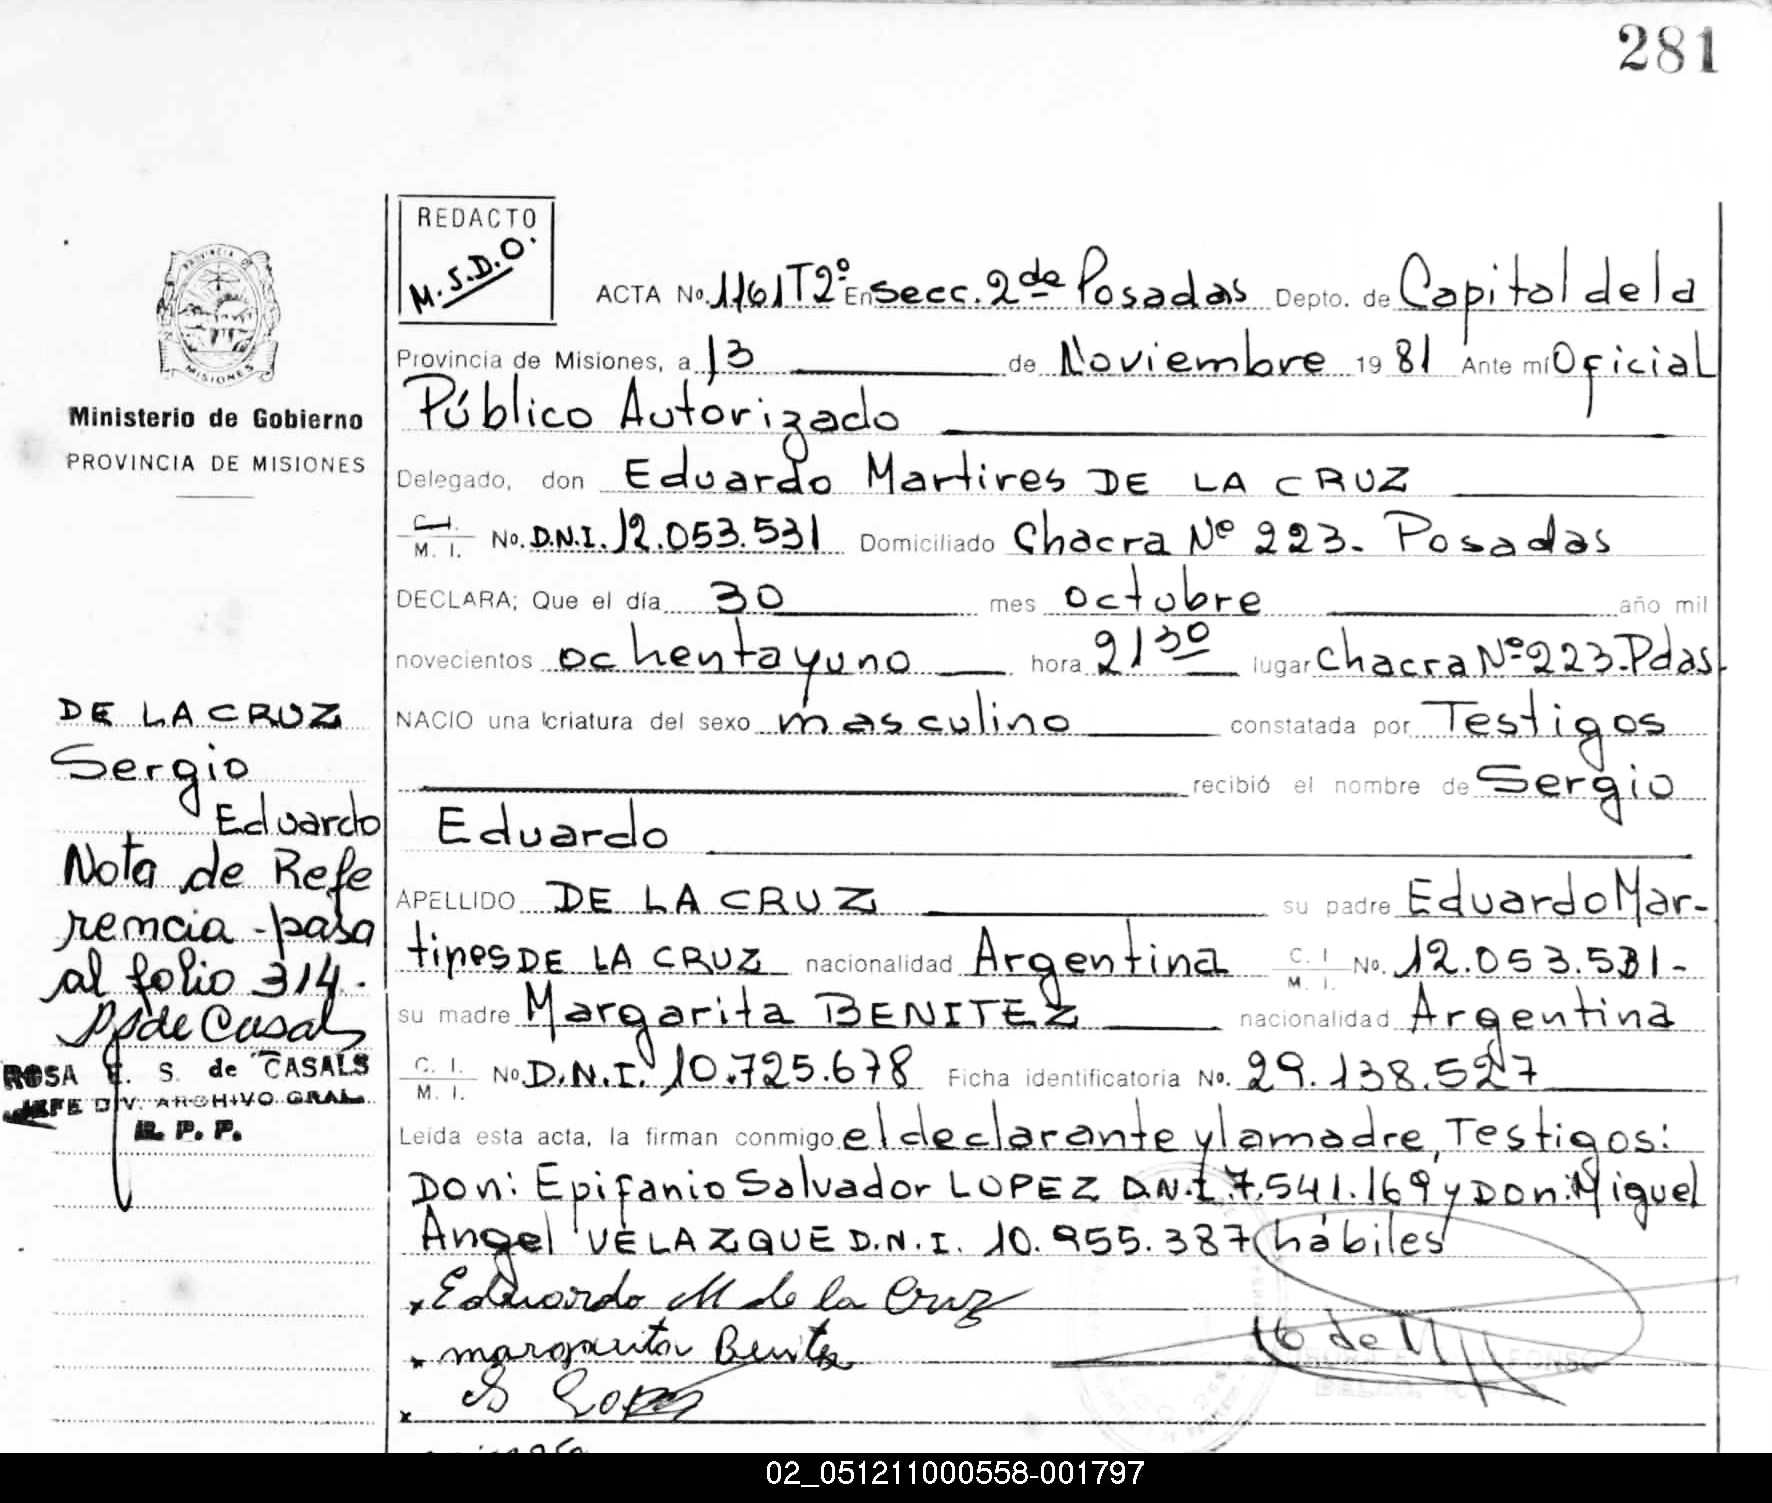 281
REDACTO
M.S.D.O.
ACTA No. 1161 T2º En Secc. 2da Posadas Depto. de Capital de la
Provincia de Misiones, a 13 de Noviembre 1981 Ante mí Oficial
Público Autorizado
Delegado, don Eduardo Martires DE LA CRUZ
C. I. M. I. No. D.N.I. 12.053.531 Domiciliado Chacra Nº 223. Posadas
DECLARA; Que el día 30 mes octubre año mil
novecientos ochenta y uno hora 21 30 lugar Chacra Nº 223. Pdas.
NACIO una criatura del sexo masculino constatada por Testigos
recibió el nombre de Sergio
Eduardo
APELLIDO DE LA CRUZ su padre Eduardo Mar-
tires DE LA CRUZ nacionalidad Argentina C. I. M. I. No. 12.053.531-
su madre Margarita BENITEZ nacionalidad Argentina
C. I. M. I. No D.N.I. 10.725.678 Ficha identificatoria No. 29.138.527
Leída esta acta, la firman conmigo, el declarante y la madre, Testigos:
Don: Epifanio Salvador LOPEZ D.N.I. 7.541.169 y Don: Miguel
Angel VELAZQUE D.N.I. 10.955.387 hábiles
Eduardo M de la Cruz
margarita Benitez
16 de
PROVINCIA DE
MISIONES
Ministerio de Gobierno
PROVINCIA DE MISIONES
DE LA CRUZ
Sergio
Eduardo
Nota de Refe
rencia - pasa
al folio 314.
de Casals
ROSA E. S. de CASALS
JEFE DIV. ARCHIVO GRAL.
R. P. P.
02_051211000558-001797